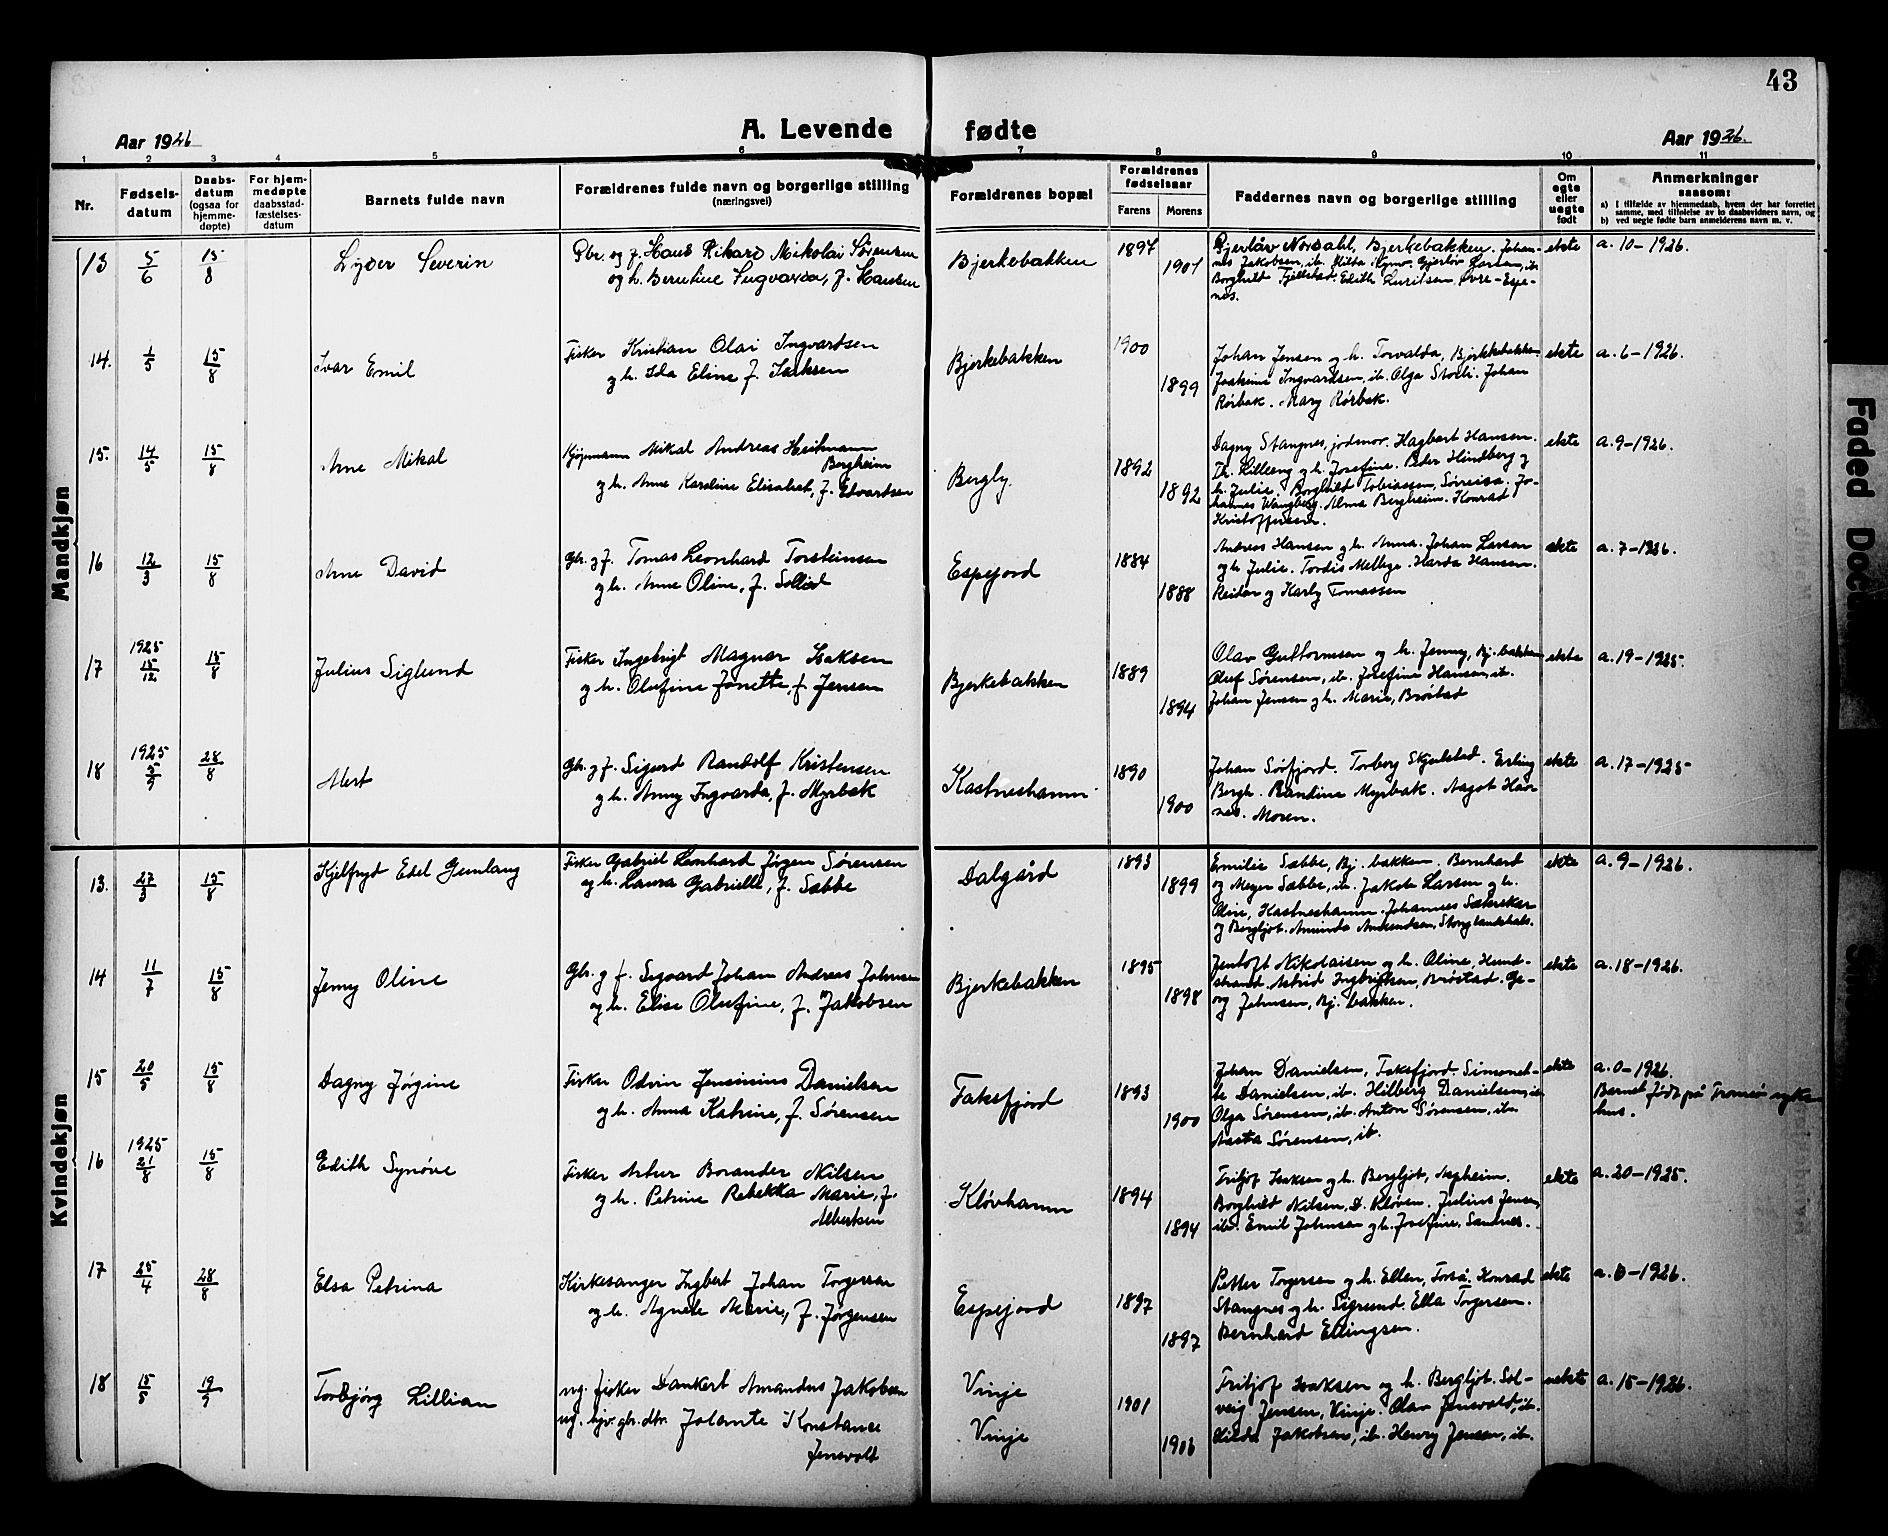 43
Aar 1926
A. Levende fødte
Aar 1926.
1 2 3 4 5 6 7 8 9 10 11
Nr.
Fødsels-
datum
Daabs-
datum
(ogsaa for
hjemme-
døpte)
For hjem-
medøpte
daabsstad-
fæstelses-
datum
Barnets fulde navn
Forældrenes fulde navn og borgerlige stilling
(næringsvei)
Forældrenes bopæl
Forældrenes
fødselsaar
Farens
Morens
Faddernes navn og borgerlige stilling
Om
egte
eller
uegte
født
Anmerkninger
saasom:
a) I tilfælde av hjemmedaab, hvem der har forrettet
samme, med tilføielse av to daabsvidners navn, og
b) ved uegte født barn anmelderens navn m. v.
Mandkjøn
13 5/6 15/8 Lyder Severin
Gbr. og f. Hans Rikard Mikolai Sørensen
og h. Berntine Ingvarda, f. Hansen
Bjerkebakken 1897 1901
Gjerløv Nordahl, Bjerkebakken. Johan-
nes Jakobsen, ib. Hilda Gjerløv Larsen, ib.
Borghild Fjellstad. Edith Luritsen, Øvre-Espe-
nes.
ekte a. 10-1926.
14. 1/5 15/8 Ivar Emil
Fisker Kristian Olai Ingvardsen
og h. Ida Eline f. Isaksen
Bjerkebakken 1900 1899
Johan Jensen og h. Torvalda, Bjerkebakken
Joakime Ingvardsen, ib. Olga Storli. Johan
Rørbak. Mary Rørbak.
ekte a. 6-1926.
15. 14/5 15/8 Arne Mikal
Kjøpmann Mikal Andreas Heitmann
Bergheim
og h. Anne Kardine Elisabet, f. Edvardsen
Bergly. 1892 1892
Dagny Stangnes, jodmor. Hagbart Hansen.
Th. Killeng og h. Josefine. Peder Hindberg og
h. Julie. Borghild Tobiassen, Sørreisa. Jo-
hannes Wangberg. Alma Bergheim. Konrad
Kristoffersen.
ekte a. 9-1926.
16 12/3 15/8 Arne David
Gbr. og f. Tomas Leonhard Torsteinsen
og h. Anne Oline, f. Sollid
Espejord 1884 1888
Andreas Hansen og h. Anna. Johan Larsen
og h. Julie. Tordis Mellige. Harda Hansen.
Reidar og Harly Tomassen
ekte a. 7-1926.
17 1925 15/12 15/8 Julius Siglund
Fisker Ingebrigt Magnar Isaksen
og h. Olufine Jonette, f. Jensen
Bjerkebakken 1889 1894
Olav Guttormsen og h. Jenny, Bj. bakken
Oluf Sørensen, ib. Josefine Hansen, ib.
Johan Jensen og h. Marie, Brøstad
ekte a. 19-1925.
18 1925 5/9 28/8 Alert
Gbr. og f. Sigurd Randolf Kristensen
og h. Anny Ingvarda, f. Myrbak
Kastneshamn 1890 1900
Johan Sørfjord. Torborg Skjelstad. Erling
Bergh. Randine Myrbak. Aagot Haar
nes. Moren.
ekte a. 17-1925
Kvindekjøn
13. 27/3 15/8 Kjelfryd Edel Gunlaug
Fisker Gabriel Leonhard Jørgen Sørensen
og h. Laura Gabrielle, f. Sæbbe
Dalgård 1893 1899
Emilie Sæbbe, Bj. bakken. Bernhard
og Meyer Sæbbe, ib. Jakob Larsen og h.
Oline, Kastneshamn. Johannes Sæterskar
og Bergljot. Aminda Amundsen, Storylandskals.
ekte a. 9-1926.
14 11/7 15/8 Jenny Oline
Gbr. og f. Sigvard Johan Andreas Johnsen
og h. Elise Olufine, f. Jakobsen
Bjerkebakken 1895 1898
Jentoft Nikolaisen og h. Oline, Hund-
strand. Astrid Ingbrigtsen, Brøstad. Ge-
org Johnsen, Bj. bakken.
ekte a. 18-1926.
15 20/5 15/8 Dagny Jørgine
Fisker Odvin Jensinius Danielsen
og h. Anna Katrine, f. Sørensen
Faksfjord 1893 1900
Johan Danielsen, Faksfjord. Simonet-
te Danielsen, ib. Hilberg Danielsen, ib.
Olga Sørensen, ib. Anton Sørensen, ib.
Aasta Sørensen, ib.
ekte a. 0-1926.
Barnet født på Tromsø syke-
hus.
16 1925 21/8 15/8 Edith Synøve
Fisker Artur Borander Nilsen
og h. Petrine Rebekka Marie, f.
Albertsen
Kløvhamn 1894 1894
Fritjof Isaksen og h. Bergljot, Aspheim.
Borghild Nilsen, D. Kløven. Julius Jensen
ib. Emil Johnsen og h. Josefine, Sandnes.
ekte a. 20-1925.
17 25/4 28/8 Elsa Petrina
Kirkesanger Ingbert Johan Torgersen
og h. Agnete Marie, f. Jørgensen
Espejord 1897 1897
Petter Torgersen og h. Ellen, Torså. Konrad
Stangnes og h. Sigrund. Ella Torgersen.
Bernhard Ellingsen.
ekte a. 0-1926.
18 15/5 19/9 Torbjørg Lillian
ug. fisker Dankert Amandus Jakobsen
ug. hjv. gbr. dtr. Jolante Konstance
Jensvold
Vinje
Vinje
1901 1906
Fritjof Isaksen og h. Bergljot. Sol-
veig Jensen, Vinje. Olav Jensvold, ib.
Hilda Jakobsen, ib. Henry Jensen, ib.
uekte a. 15-1926.
Faded Docu